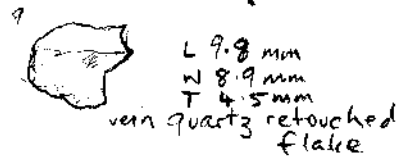 9
L 9.8 mm
W 8.9 mm
T 4.5 mm
vein quartz retouched
flake